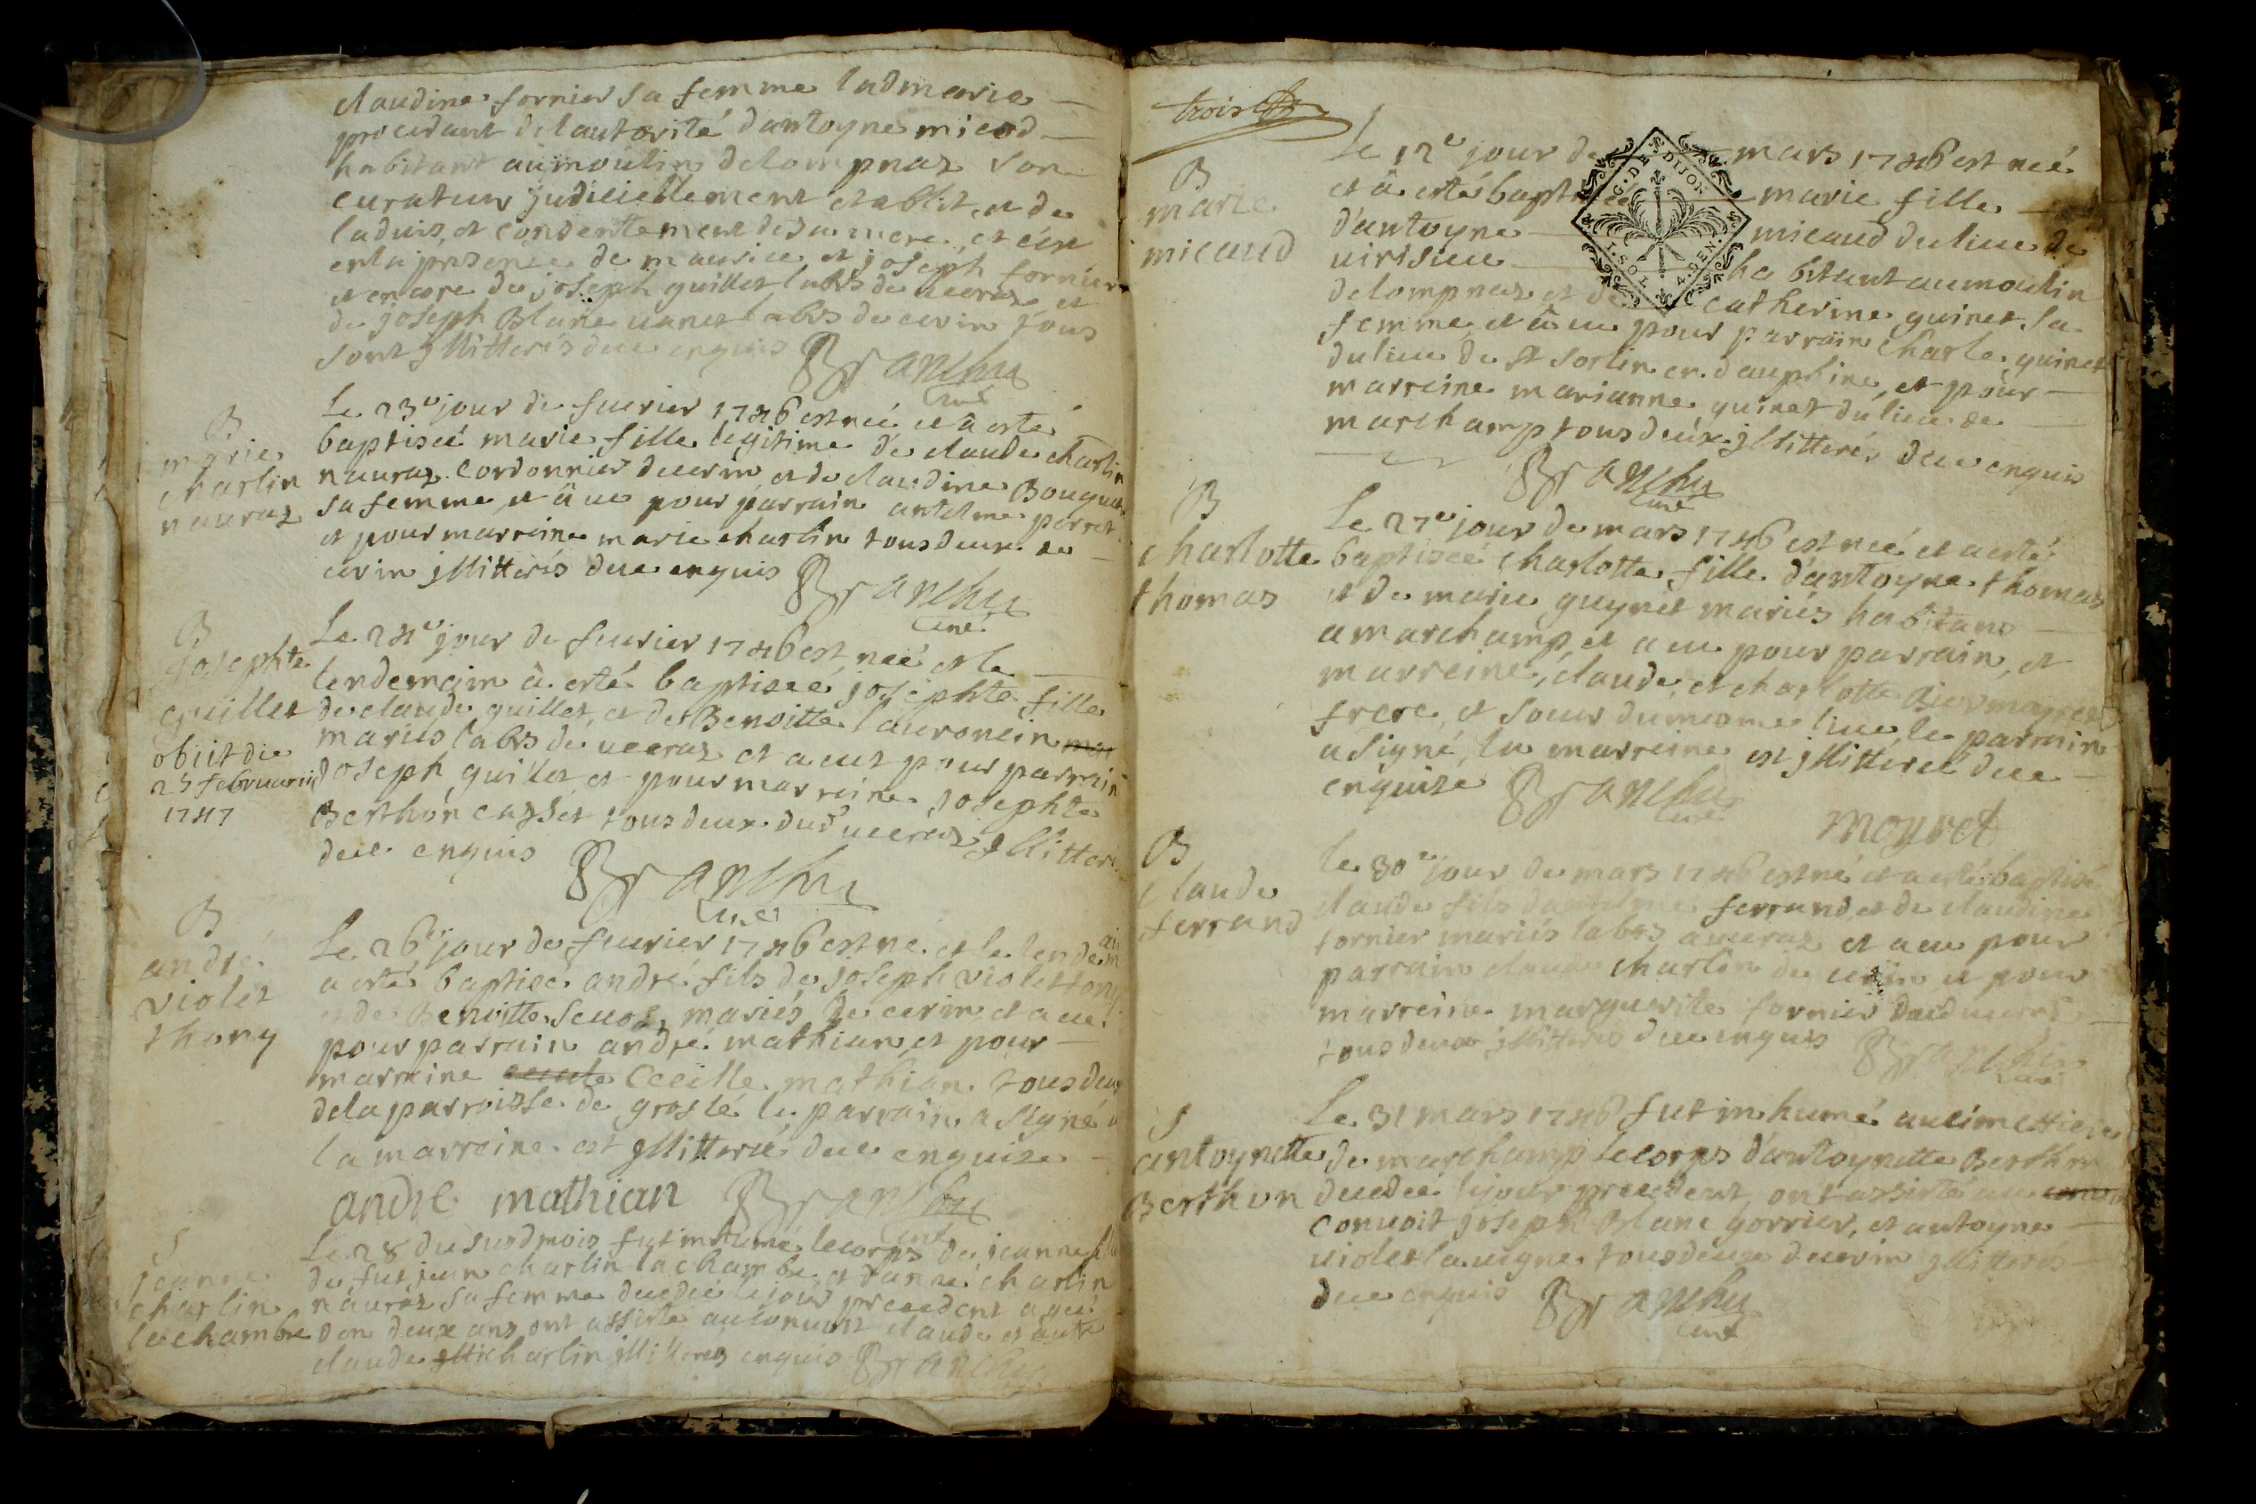 claudine fornier sa femme ladmarie
procedant de lautorité dantoyne micod
habitant au moulin de lompnaz son
curateur judiciellement etablit, et de
ladvis, et consentement de sa mere, et c'est
en la presence de maurice et joseph fornier
et encore de joseph guillet labrs de ueeraz et
de joseph Blanc uanet labrs de cerin tous
sont jllitterés due enquis Branchu
curé
B
marie
charlin
nauraz
Le 23e jour de feurier 1746 est neé et â esté
baptiseé marie fille legitime de claude charlin
nauraz cordonnier de cerin et de claudine Bouquet
sa femme, et â ue pour parrain antelme perret
et pour marreine marie charlin tous deux de
cerin jllitterés due enquis Branchu
curé
B
josephte
guillet
obiit die
25 februarii
1747
Le 24e jour de feurier 1746 est neé et le
lendemain â esté baptiseé josephte fille
de claude guillet, et de Benoitte lauroncin
mariés labrs de ueeraz et a eut pour parrain
Joseph guillet et pour marreine josephte
Berthon casset tous deux dud ueeraz jllitterés
due enquis Branchu
curé
B
andré
violet
thony
Le 26e jour de feurier 1746 est né et le lendemain
a esté baptisé andré fils de joseph violet tony
et de Benoitte seuoz mariés de cerin et a eu
pour parrain andre mathian et pour
marreine Ceeille mathian tous deux
de la parroisse de groslé le parrain a signé
la marreine est jllitterée due enquise
andre mathian Branchu
curé
S
jeanne
charlin
lachambre
Le 28 du susd mois fut inhumé le corps de jeanne fille
de fut jean charlin lachambre et danne charlin
nauraz sa femme decedeé le jour precedent ageé
den deux ans ont assisté au conuoit claude et autre
claude charlin jllitterez enquis Branchu
trois
B
marie
micaud
Le 12e jour de mars 1746 est neé
et â esté baptiseé marie fille
d'antoyne micaud du lieu de
uirisieu habitant au moulin
de lompnaz et de catherine guinet sa
femme et â ue pour parrain charle guinet
du lieu de st sorlin en dauphiné, et pour
marreine marianne guinet du lieu de
marchamp tous deux jllitterés due enquis
Branchu
curé
G. DE DIJON
1. SOL. 4. DEN.
B
charlotte
thomas
Le 27e jour de mars 1746 est neé et a esté
baptiseé charlotte fille d'antoyne thomas
et de marie guynet mariés habitans
a marchamp, et a eu pour parrain, et
marreine, claude, et charlotte
frere, et soeur du meme lieu, le parrain
a signé, la marreine est jllitereé due
enquise Branchu
curé
moyret
B
claude
ferrand
le 30e jour de mars 1746 est né et a esté baptisé
claude fils dantelme ferrand et de claudine
fornier mariés labrs a ueeraz et a eu pour
parrain claude charlin de cerin et pour
marreine marguerite fornier dud ueeraz
tous deux jllitterés due enquis Branchu
curé
S
antoynette
Berthon
Le 31 mars 1746 fut inhumé au cimettiere
de marchamp le corps d'antoynette Berthon
decedeé le jour precedent, ont assisté au
conuoit joseph Blanc gorrier, et antoyne
violet lauigne tous deux de cerin jllitterés
due enquis Branchu
curé